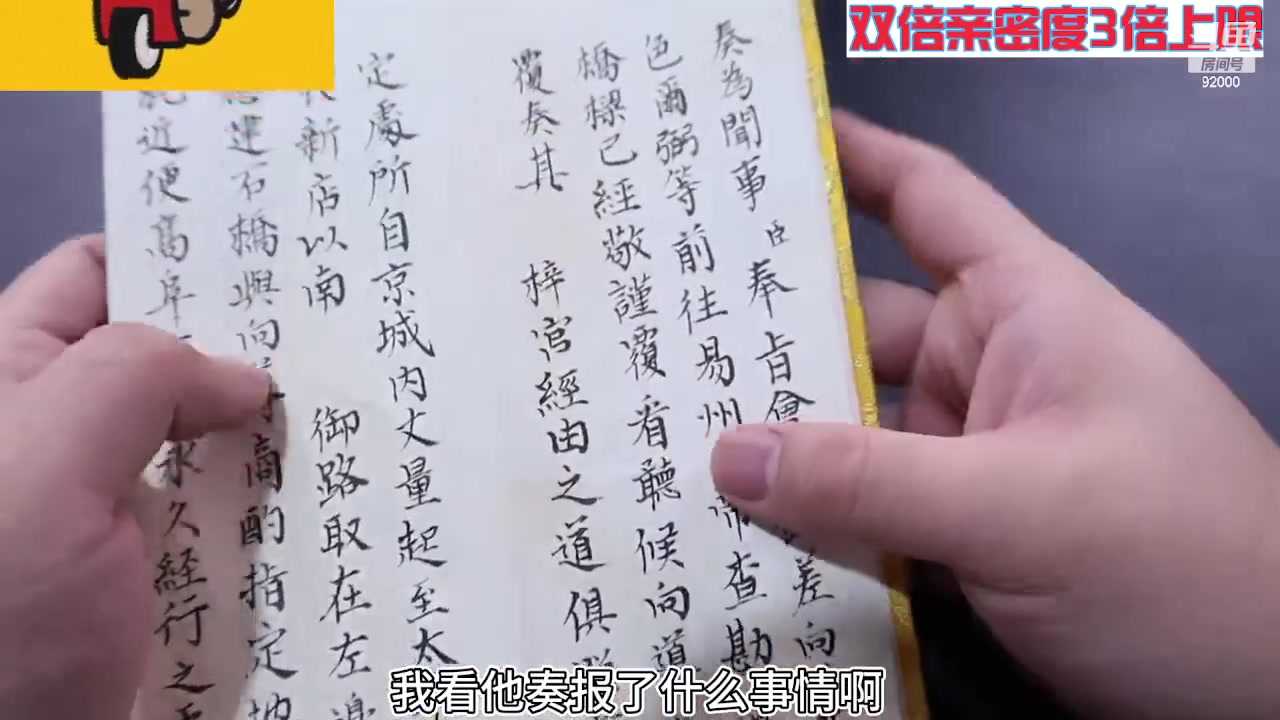 双倍亲密度3倍上限
房间号
92000
奏為聞事臣奉旨會
差向
色爾弼等前往易州
查勘
橋樑已經敬謹覆看聽候向道
覆奏其 梓宮經由之道俱
定處所自京城內丈量起至太
新店以南 御路取在左邊
建石橋與向
商酌指定地
近便高阜
永久經行之
我看他奏报了什么事情啊